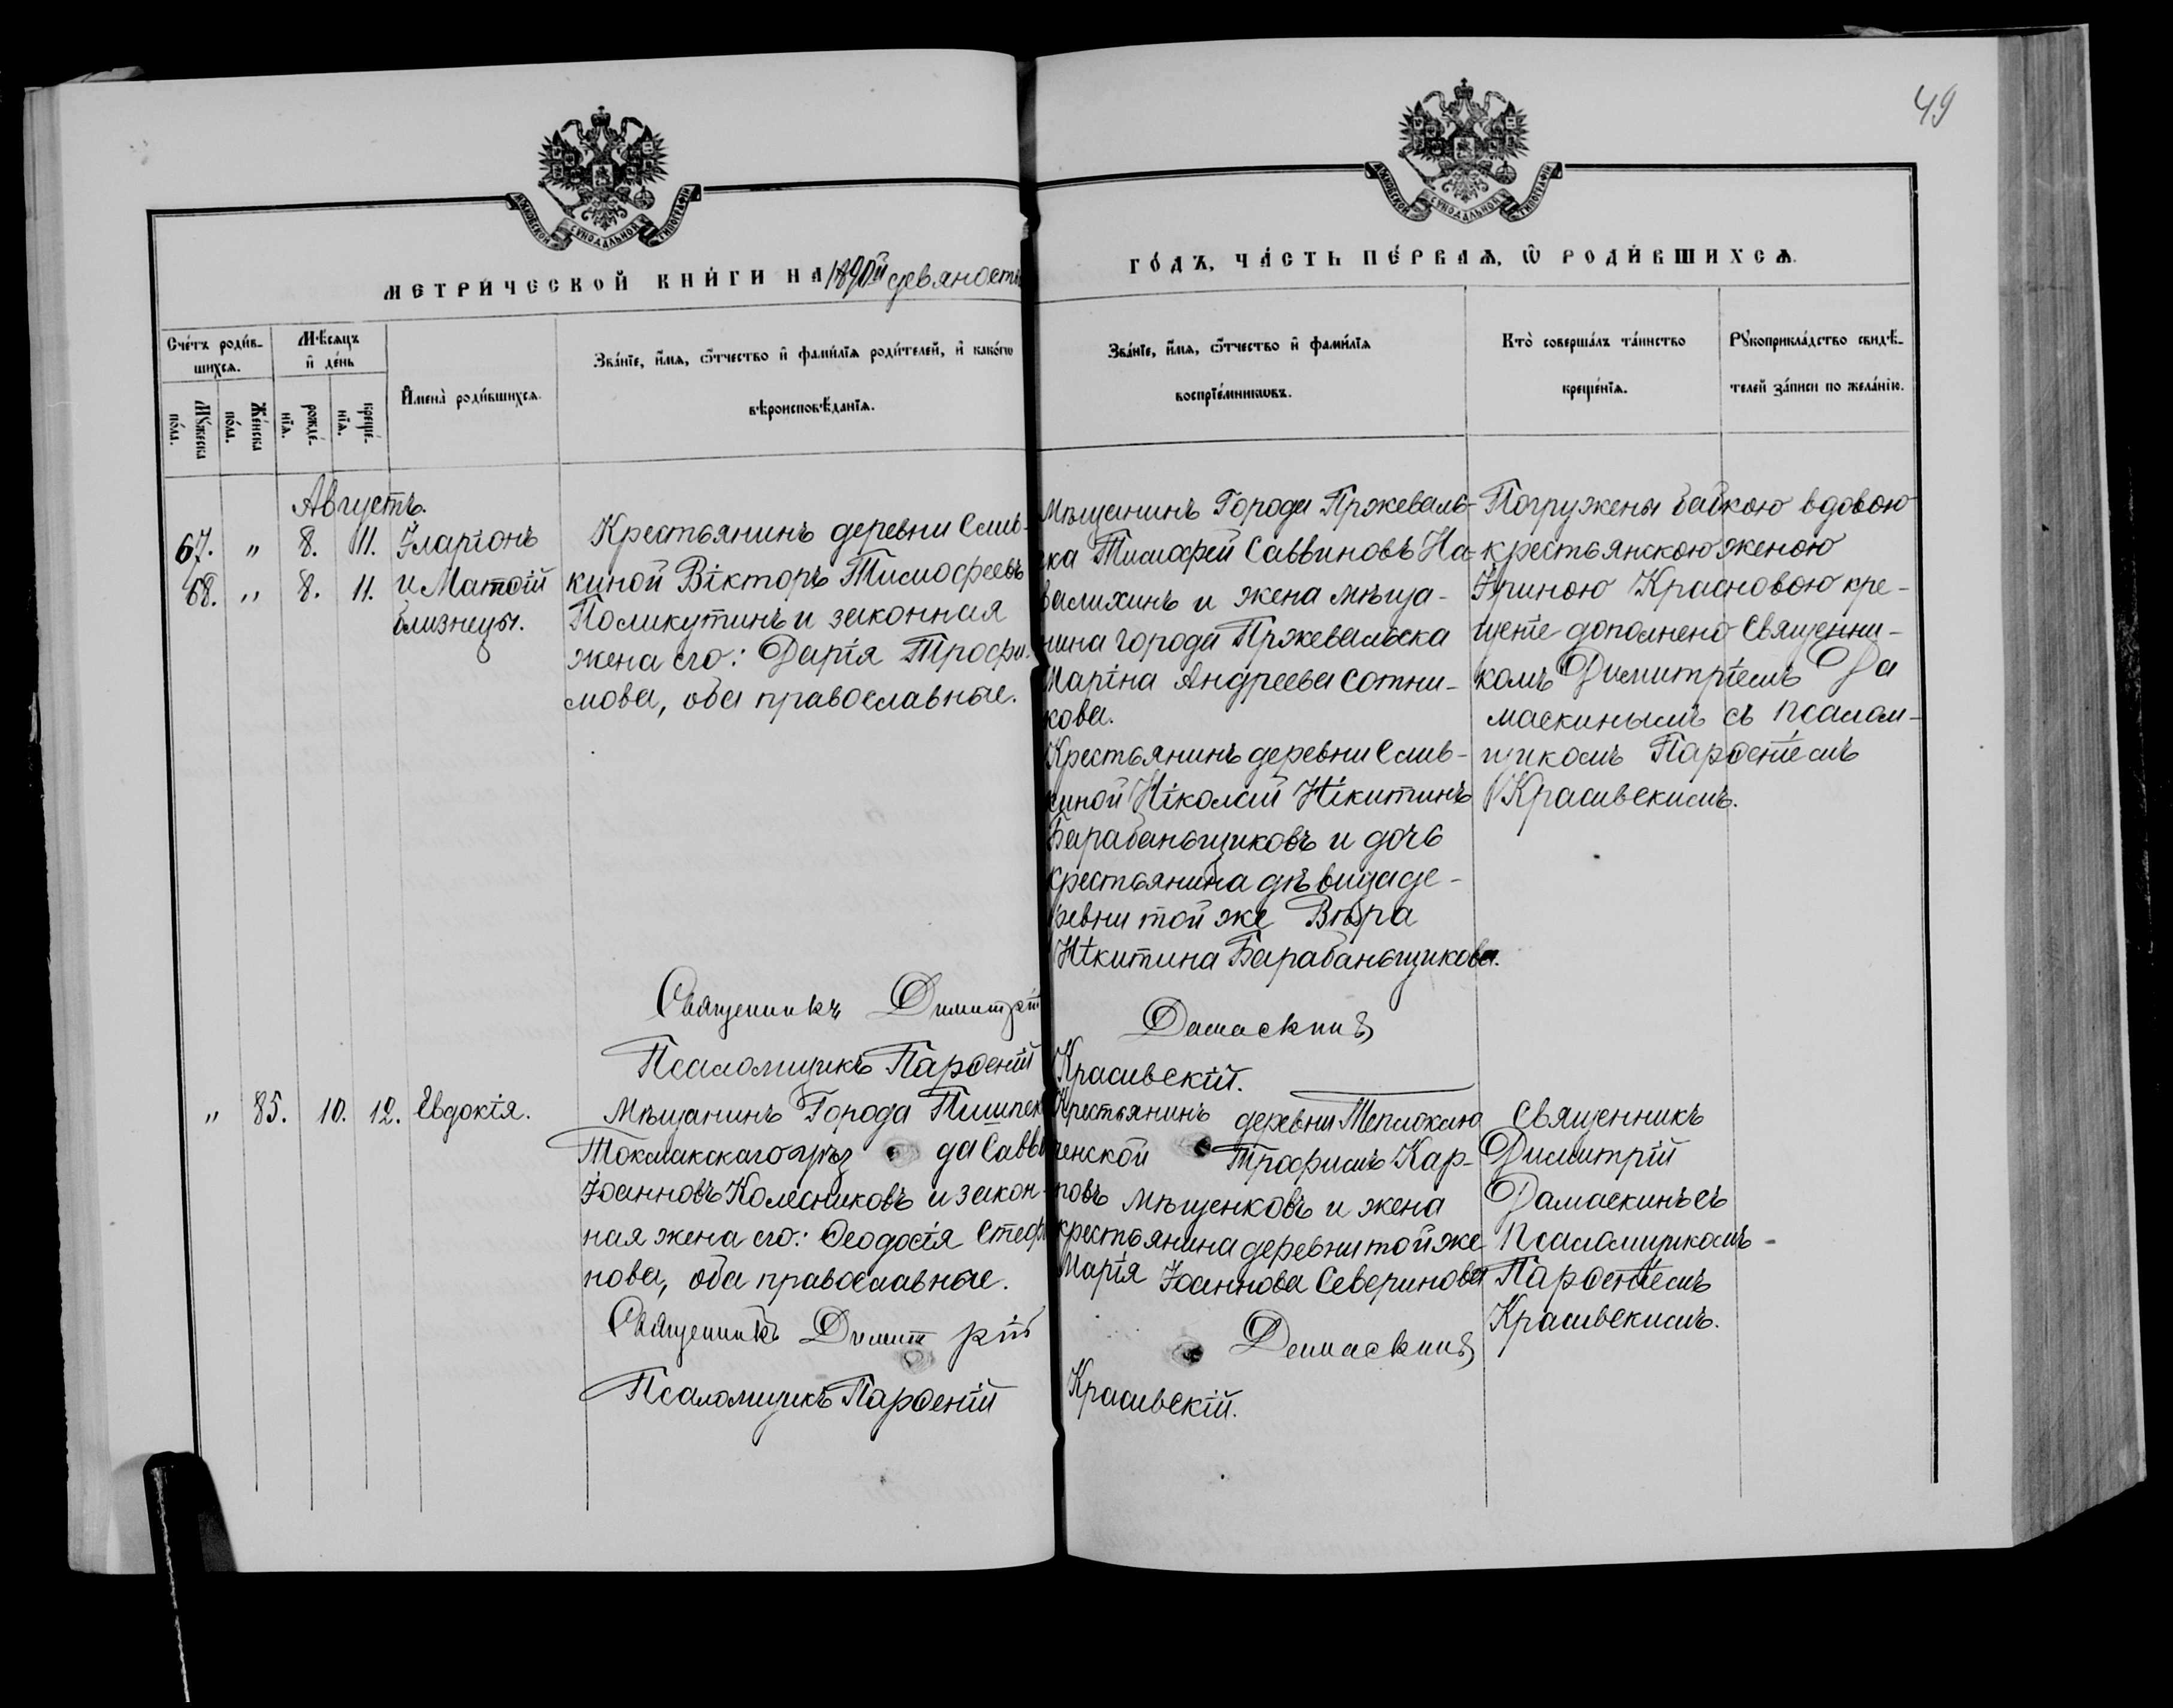 49
МОСКОВСКОЙ СѴНОДАЛЬНОЙ ТИПОГРАФІИ
МОСКОВСКОЙ СѴНОДАЛЬНОЙ ТИПОГРАФІИ
МЕТРИ́ЧЕСКОЙ КНИ́ГИ НА 1890й девяносты
ГО́ДЪ, ЧА́СТЬ ПЕ́РВАѦ, Ѡ҆ РОДИ́ВШИХСѦ.
Сче́тъ роди́в-
шихсѧ.
Мꙋ́жеска
по́ла.
Же́нска
по́ла.
Мѣ́сѧцъ
и҆ де́нь
рожде́-
нїѧ.
креще́-
нїѧ.
И҆мена̀ роди́вшихсѧ.
Зва́нїе, и҆́мѧ, ѻ҆́тчество и҆ фами́лїѧ роди́телей, и҆ како́гѡ
вѣроисповѣ́данїѧ.
Зва́нїе, и҆́мѧ, ѻ҆́тчество и҆ фами́лїѧ
воспрїе́мникѡвъ.
Кто̀ соверша́лъ та́инство
креще́нїѧ.
Рꙋкоприкла́дство свидѣ́-
телей за́писи по жела́нїю.
Августъ.
67. " 8. 11. Іларіонъ
68. " 8. 11. и Матѳій
близнецы.
Крестьянинъ деревни Слив-
киной Вікторъ Тимофеевъ
Поликутинъ и законная
жена его: Дарія Трофи-
мова, оба православные.
Мѣщанинъ Города Пржеваль-
ска Тимофей Саввиновъ На-
валихинъ и жена мѣща-
нина города Пржевальска
Маріна Андреева Сотни-
кова.
Крестьянинъ деревни Слив-
киной Ніколай Нікитинъ
Барабаньщиковъ и дочь
крестьянина дѣвица де-
ревни той же Вѣра
Нікитина Барабаньщикова.
Погружены бабкою вдовою
крестьянскою женою
Іриною Красновою кре-
щеніе дополнено Священни-
комъ Димитріемъ Да
маскинымъ съ псалом-
щикомъ Парѳеніемъ
Красивскимъ.
Священникъ Димитрій Дамаскинъ
Псаломщикъ Парѳеній Красивскій.
" 85. 10. 12. Евдокія.
Мѣщанинъ Города Пишпек
Токмакскаго уѣз да Савв
Іоанновъ Колесниковъ и закон-
ная жена его: Ѳеодосія Стефа
нова, оба православные.
Крестьянинъ деревни Теплоклю
ченской Трофимъ Кар-
повъ Мѣщенковъ и жена
крестьянина деревни той же
Марія Іоаннова Северинова
Священникъ
Димитрій
Дамаскинъ съ
Псаломщикомъ
Парѳеніемъ
Красивскимъ.
Священникъ Димит рій Дамаскинъ
Псаломщикъ Парѳеній Красивскій.